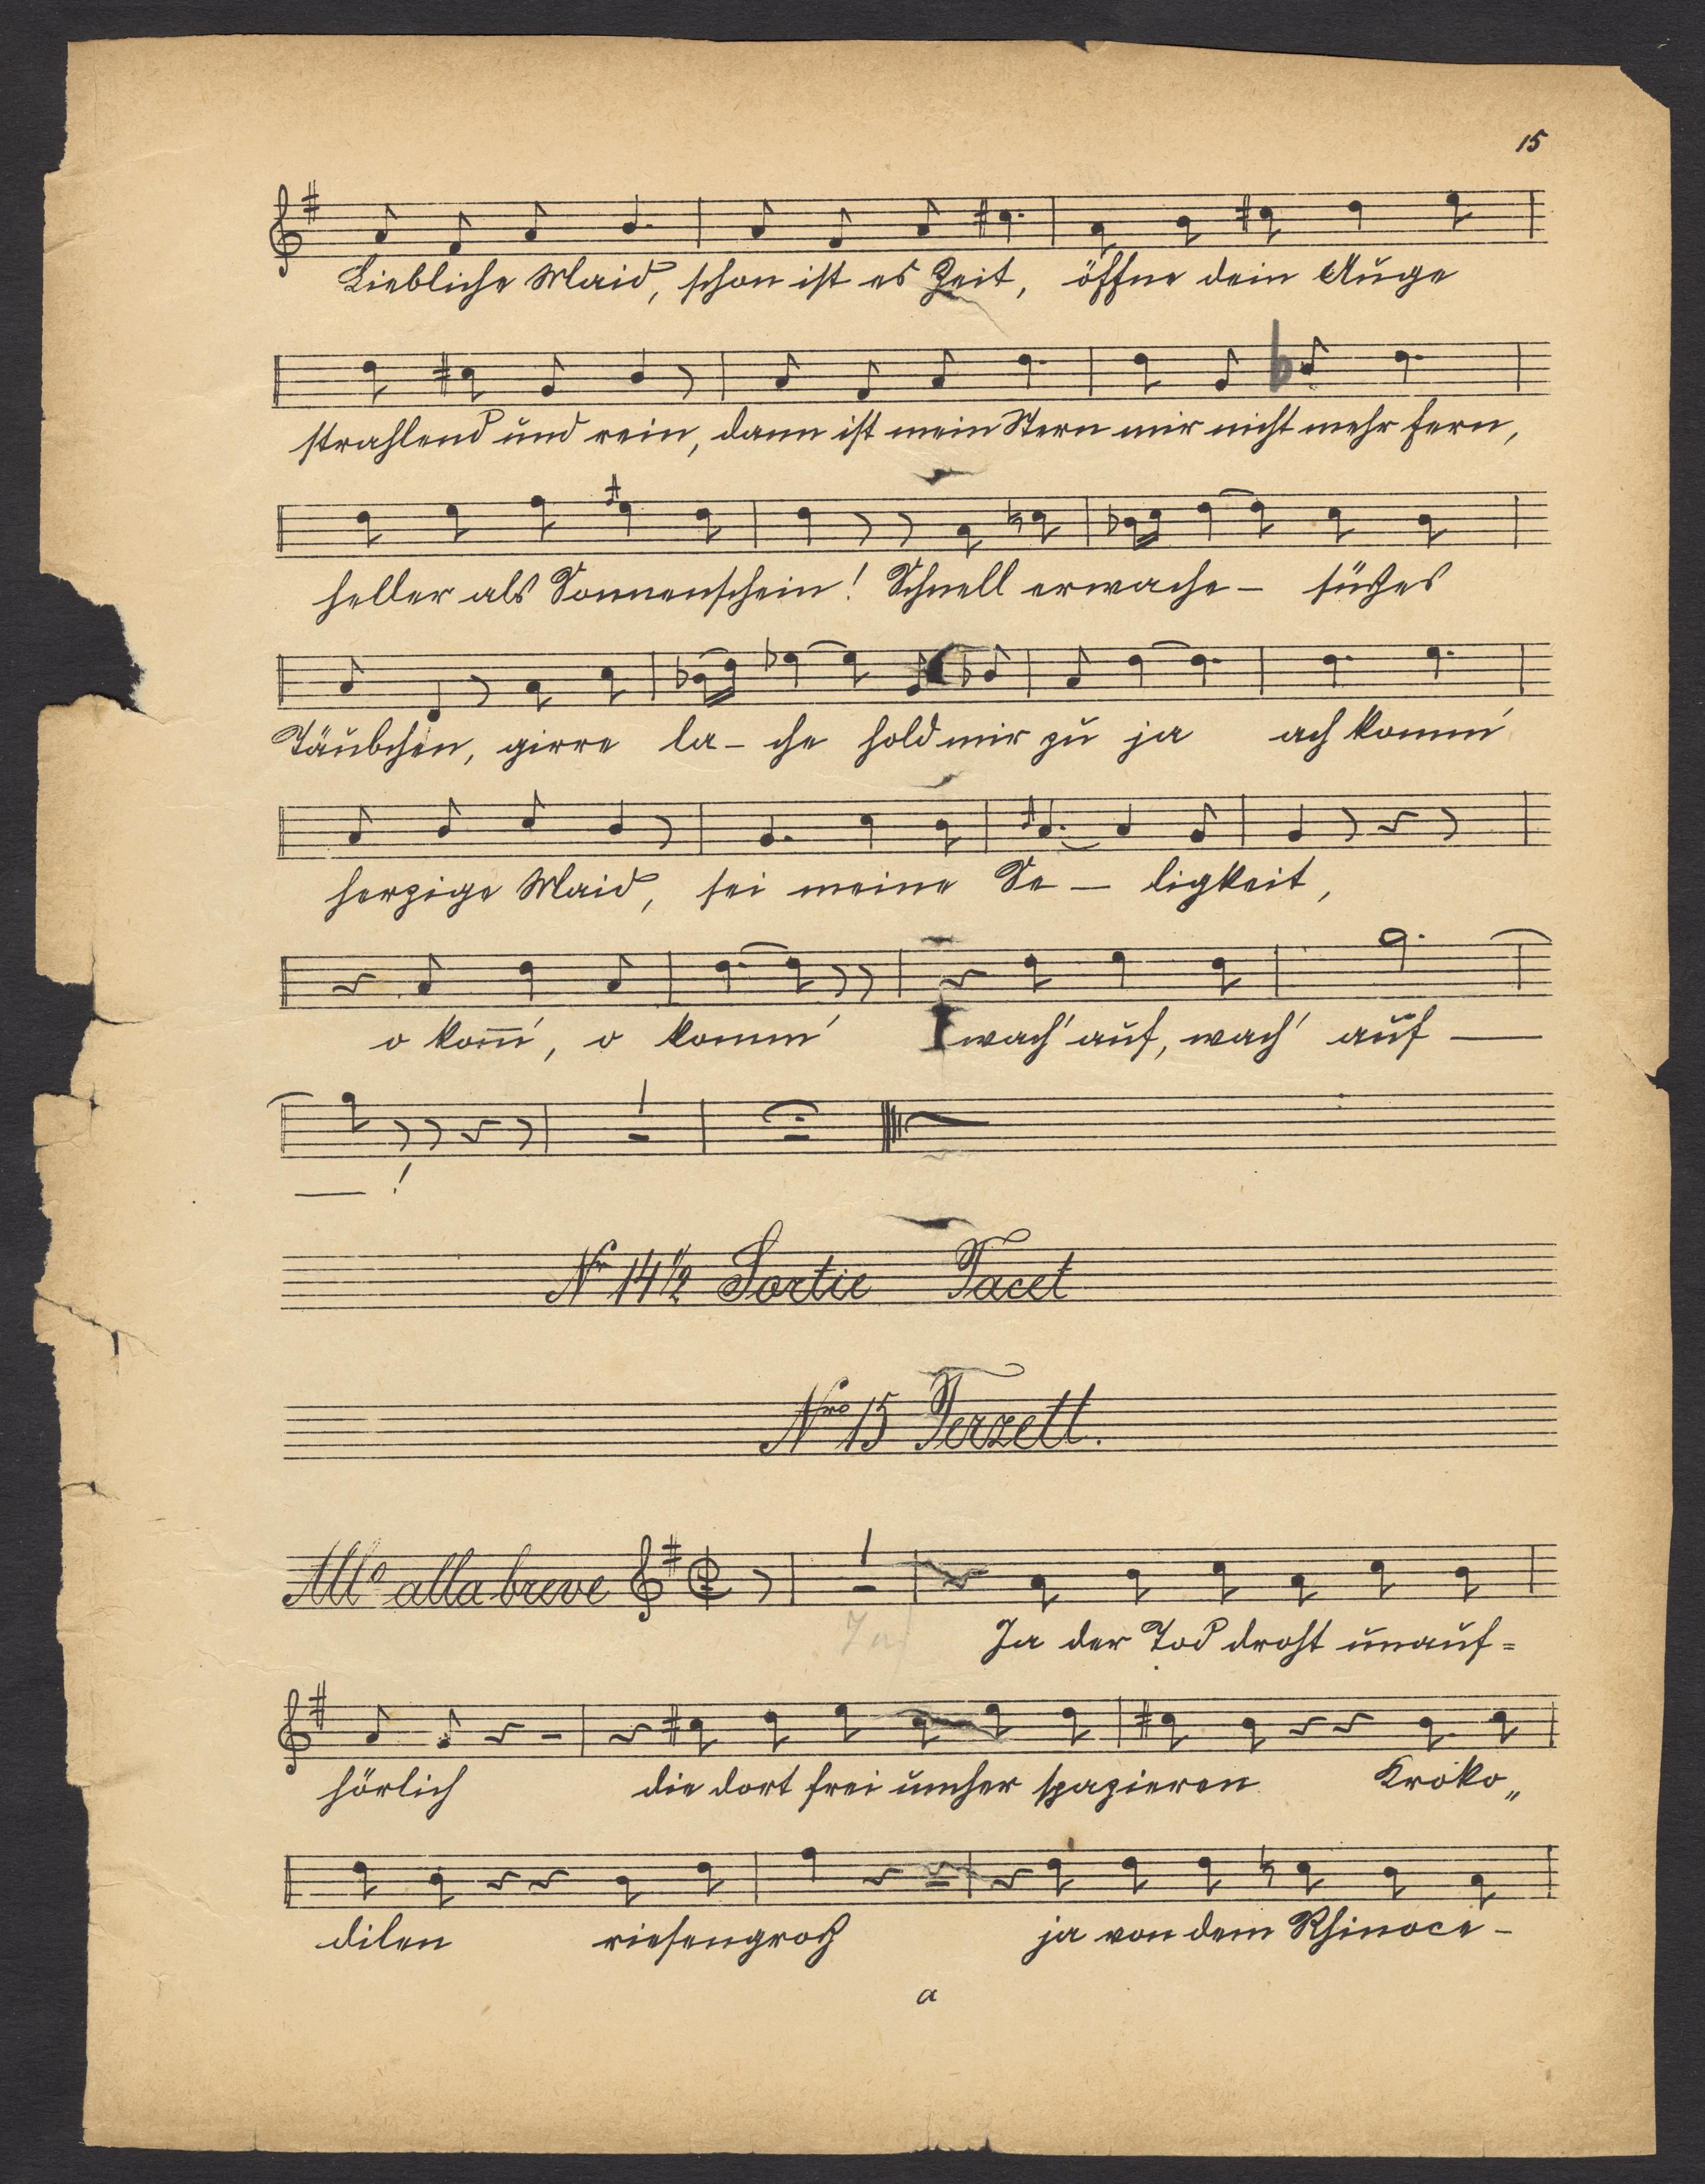 15
Liebliche Maid, schon ist es Zeit, öffne dein Auge
strahlend und rein, dann ist mein Stern mir nicht mehr fern,
heller als Sonnenschein! Schnell erwache – süßes
Täubchen, girre la – che hold mir zu ja ach komm'
herzige Maid, sei meine Se – ligkeit,
o kom̅', o komm' wach' auf, wach' auf —
— !
Nr 14½ Sortie Tacet
Nro 15 Terzett.
Allo alla breve
Ja
Ja der Tod droht unauf=
hörlich die dort frei umher spazieren Kroko„
dilen riesengroß ja von dem Rhinoce-
a